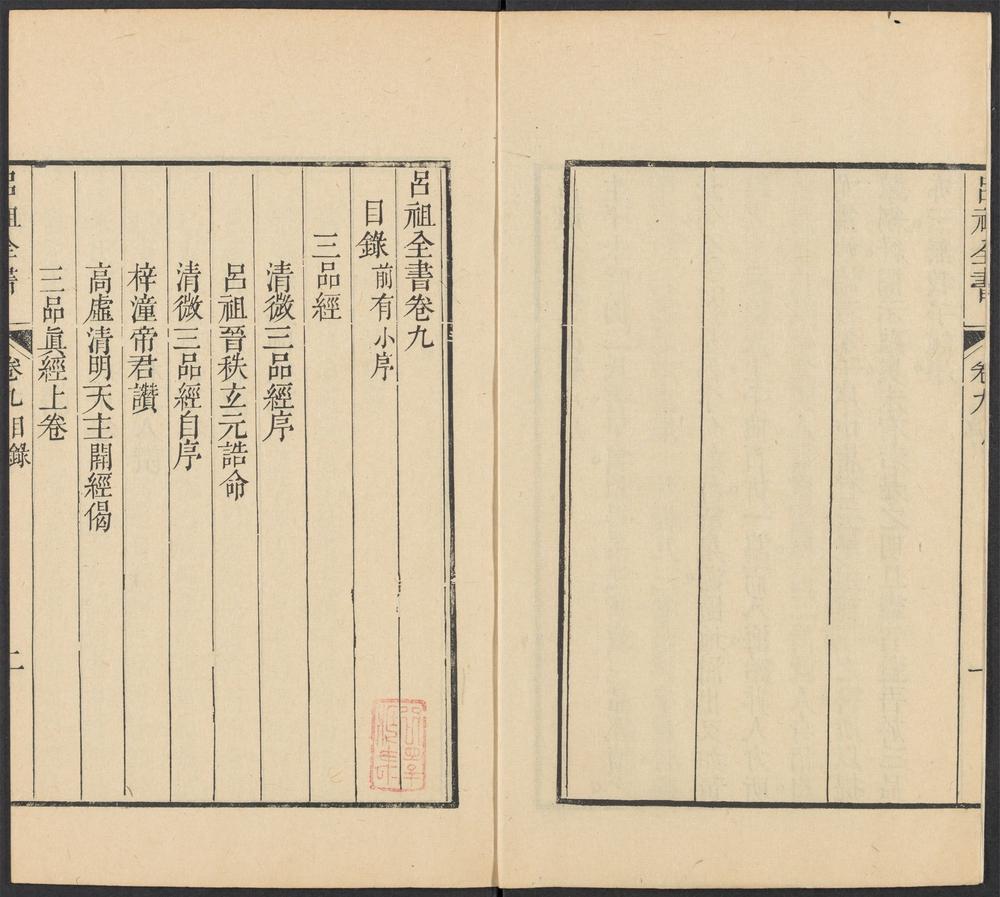 呂祖全書
卷九
一
呂祖全書卷九
目錄前有小序
三品經
清微三品經序
呂祖晉秩玄元誥命
清微三品經自序
梓潼帝君讚
高虛清明天主開經偈
三品眞經上卷
呂祖全書
卷九目錄
二